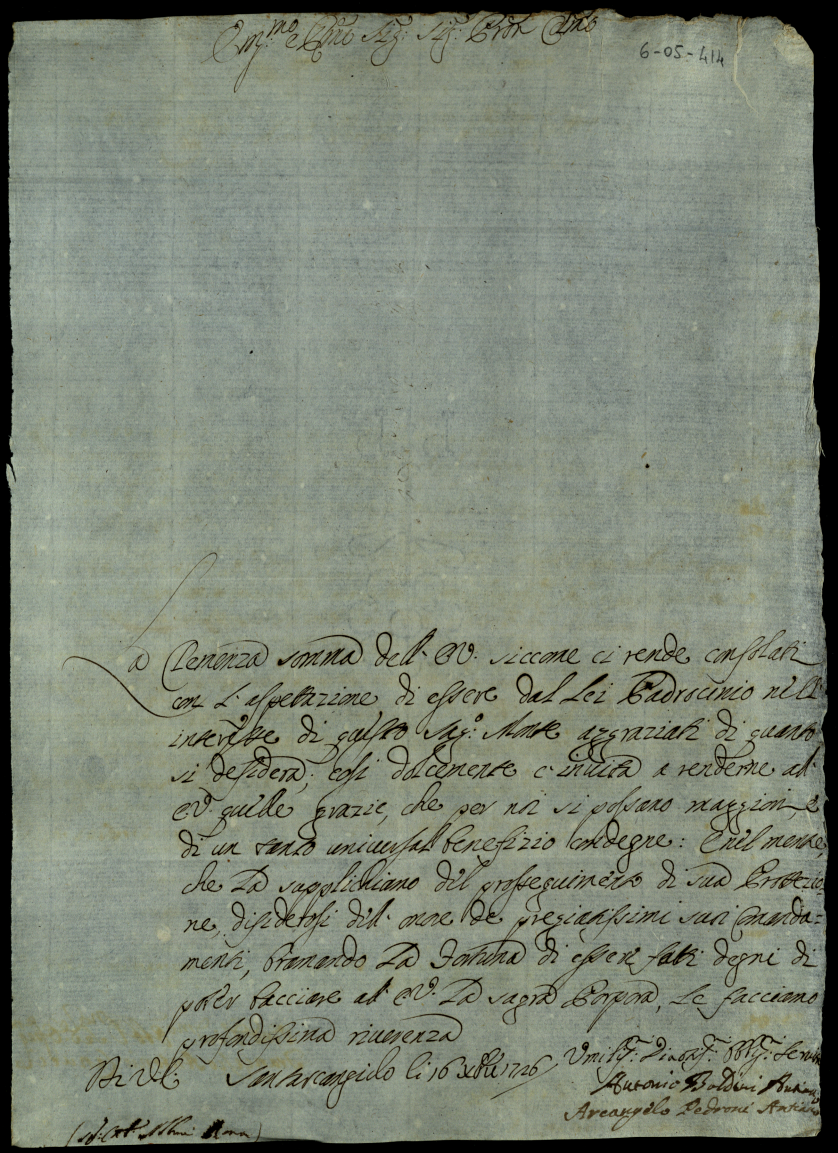 Em.mo e Rmo Sig: Sig: Pron Cmo
6-05-414
La Clemenza somma dell' E.V. siccome ci rende consolati
con l'aspettazione di essere dal Lei Padrocinio nell'
interesse di questo Sag.o Monte aggraziati di quanto
si desidera; così dolcemente c'invita a renderne all'
E.V. quelle grazie, che per noi si possano maggiori, e
di un tanto universal benefizio condegne: E nel mentre,
che La supplichiamo del proseguimento di sua Protezio
ne, desiderosi dell' onore de pregiatissimi suoi Comanda=
menti, bramando La Fortuna di essere fatti degni di
poter bacciare all' E.V. La sagra Porpora, Le facciamo
profondissima riverenza
Di V.E. Santarcangiolo li 16 Xbre 1726 Umil.mi Divot.mi Obl.mi Servit
Antonio Baldini
Arcangelo Pedroni Antian